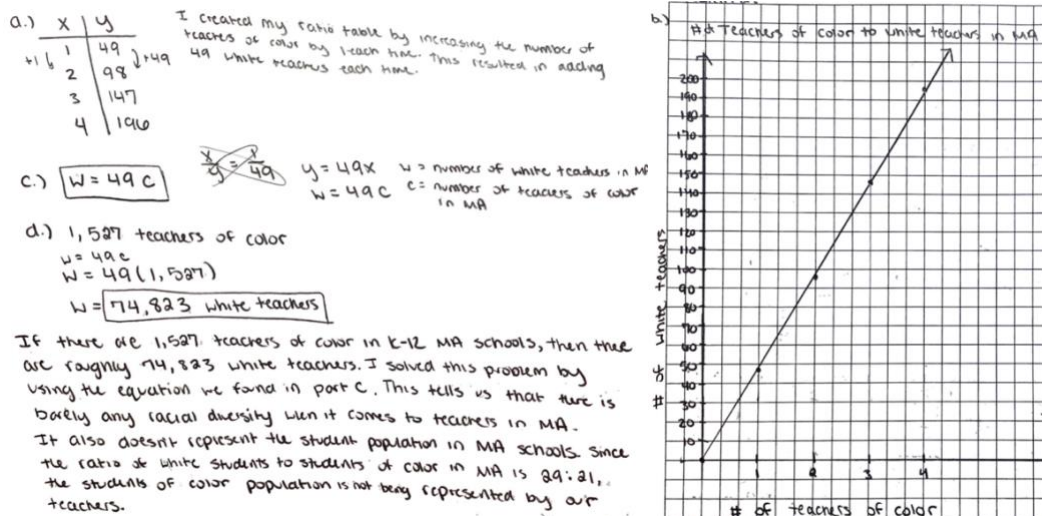 a.) x | y
1 | 49
2 | 98
3 | 147
4 | 196
+1
+49
I created my ratio table by increasing the number of
teachers of color by 1 each time. This resulted in adding
49 white teachers each time.
c.) W = 49 C
x/y = 1/49
y = 49x
W = 49 C
W = number of white teachers in MA
C = number of teachers of color
in MA
d.) 1,527 teachers of color
W = 49c
W = 49(1,527)
W = 74,823 white teachers
If there are 1,527 teachers of color in K-12 MA schools, then there
are roughly 74,823 white teachers. I solved this problem by
using the equation we found in part C. This tells us that there is
barely any racial diversity when it comes to teachers in MA.
It also doesn't represent the student population in MA schools. Since
the ratio of white students to students of color in MA is 29:21,
the students of color population is not being represented by our
teachers.
b.)
# of Teachers of color to white teachers in MA
200
190
180
170
160
150
140
130
120
110
100
90
80
70
60
50
40
30
20
10
# of white teachers
1 2 3 4
# of teachers of color